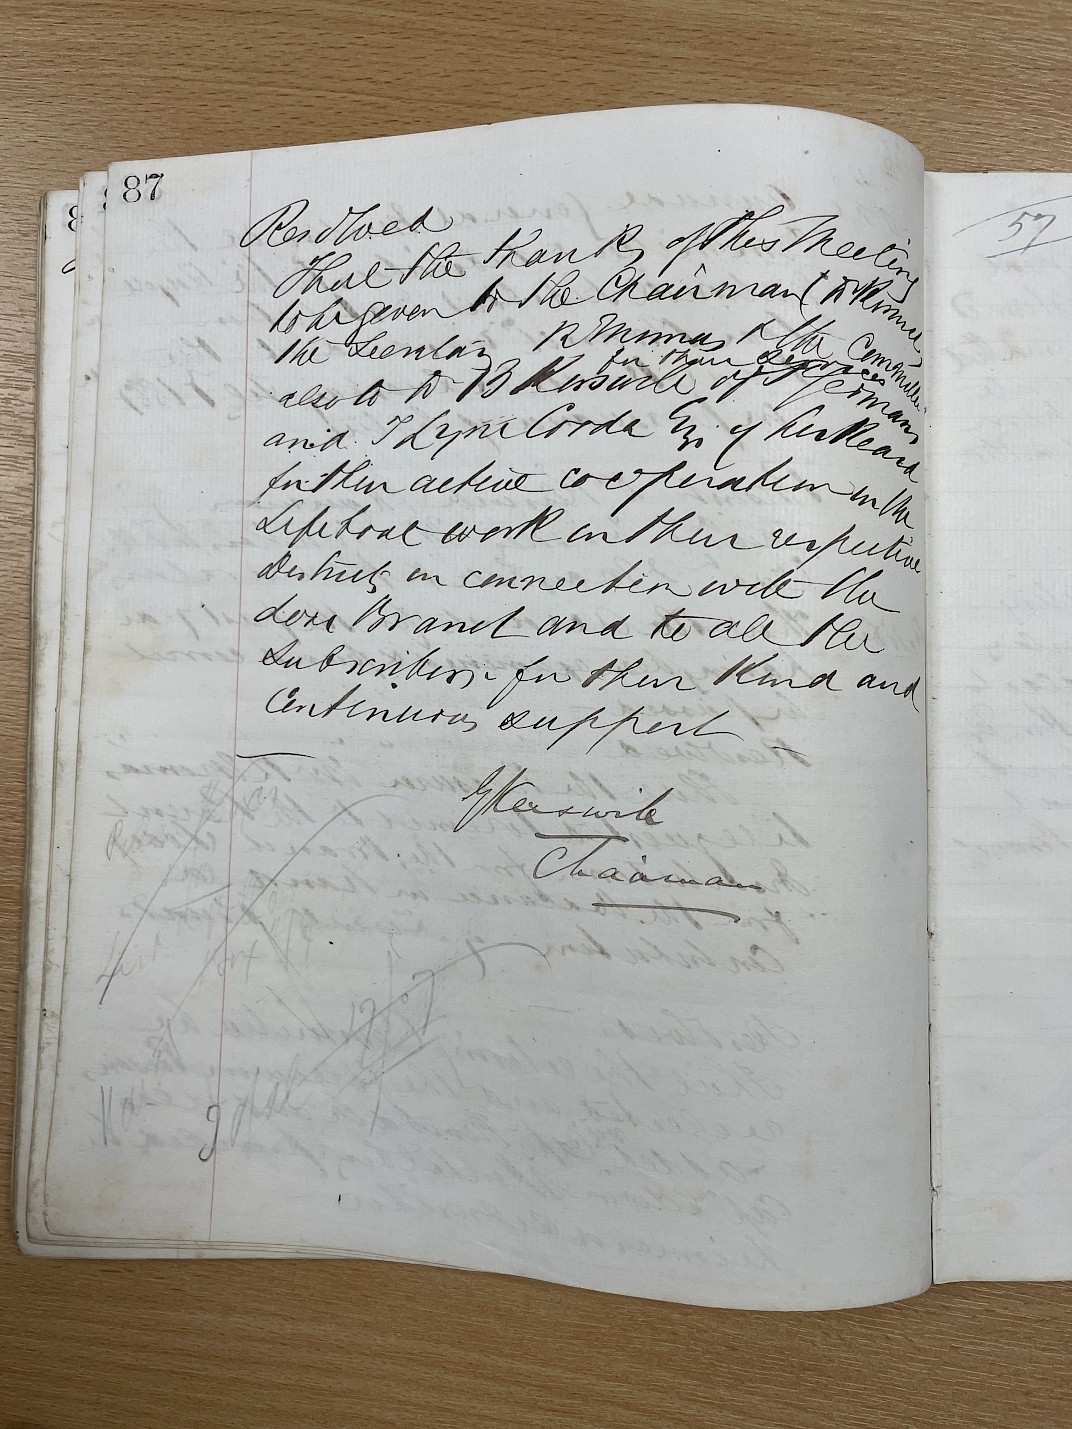 87
57
Resolved
That the thanks of this Meeting
to be given to the Chairman (Dr Kerswill
the Secretary R Thomas & the Committee
for their services
also to Dr B Kerswill of St Germans
and Lyne Esq. of Liskeard
for their active cooperation in the
Lifeboat work in their respective
Districts in connection with the
Looe Branch and to all the
Subscribers for their kind and
continuous support
Kerswill
Chairman